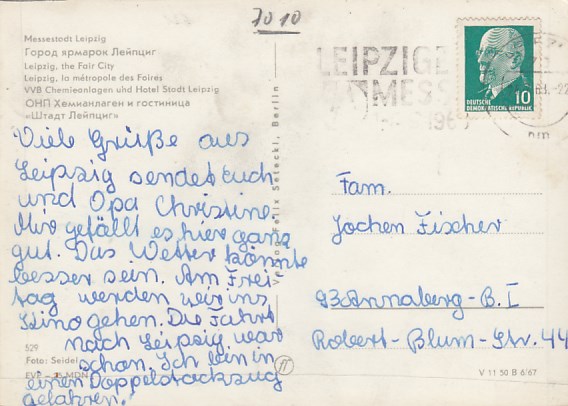 7010
Messestadt Leipzig
Город ярмарок Лейпциг
Leipzig, the Fair City
Leipzig, la métropole des Foires
VVB Chemieanlagen und Hotel Stadt Leipzig
ОНП Хемианлаген и гостиница
«Штадт Лейпциг»
LEIPZIGE
MES
196
10
DEUTSCHE
DEMOKRATISCHE REPUBLIK
Viele Grüße aus
Leipzig sendet euch
und Opa Christine.
Mir gefällt es hier ganz
gut. Das Wetter könnte
besser sein. Am Frei-
tag werden wir ins
Kino gehen. Die Fahrt
nach Leipzig war
schön. Ich bin in
einen Doppelstockzug
gefahren.
529
Foto: Seidel
EVP
MDN
Verlag Felix Setecki, Berlin
Fam.
Jochen Fischer
93 Annaberg-B. I
Robert-Blum-Str. 44
V 11 50 B 6/67